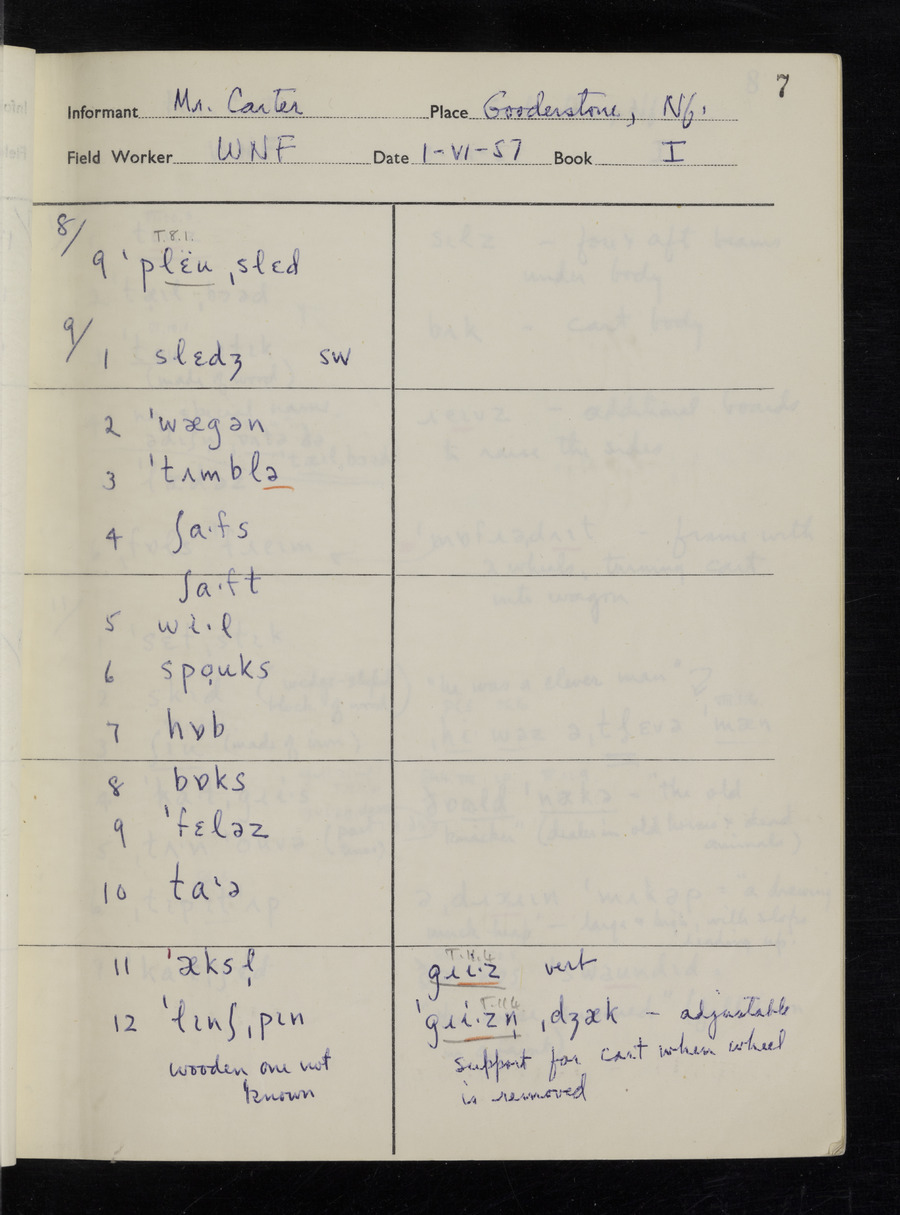 7
Informant Mr. Carter Place Gooderstone, Nf.
Field Worker WNF Date 1-VI-57 Book I
8/
T.8.1.
9 ˈplëu ˌslɛd
9/
1 slɛdʒ sw
2 ˈwægən
3 ˈtʌmblə
4 ʃa·fs
ʃa·ft
5 wi·l
6 spọuks
7 hɒb
8 bɒks
9 ˈfɛləz
10 taˈə
11 ˈæksl̩
12 ˈlɪnʃˌpɪn
wooden one not
known
gɪi·z vert
ˈgɪi·zn̩ ˌdʒæk – adjustable
support for cart when wheel
is removed